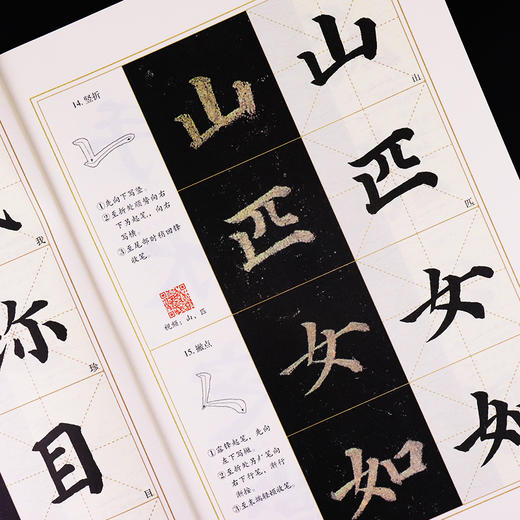 14. 竖折
①先向下写竖。
②至折处顺势向右
下另起笔，向右
写横。
③至尾部时稍回锋
收笔。
视频：山、匹
15. 撇点
①露锋起笔，先向
左下写短。
②至折处另起笔向
右下行笔，渐行
渐按。
③至末端轻顿收笔。
山
匹
女
如
山
山
匹
匹
女
如
我
珎
珍
目
目